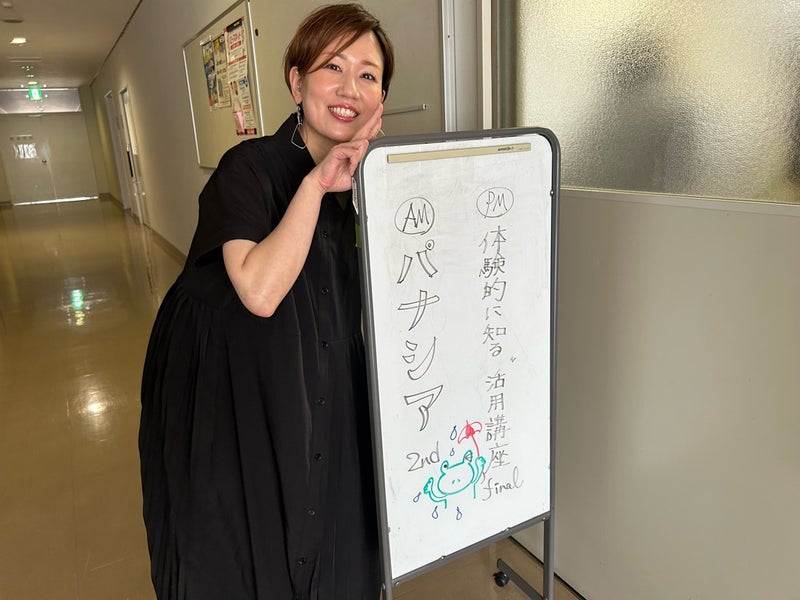 PM
体験的に知る〝活用講座
final
AM
パナシア
2nd